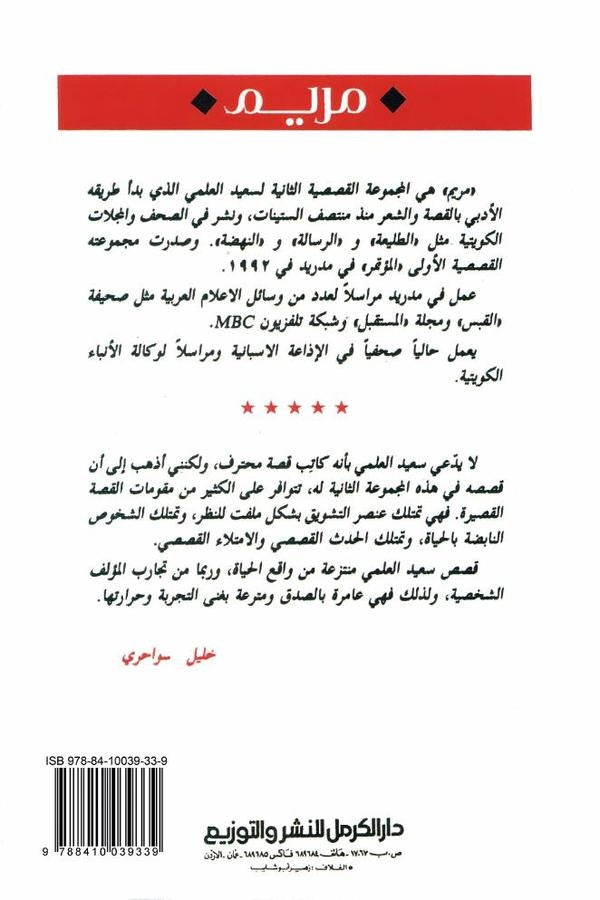 مريم
«مريم» هي المجموعة القصصية الثانية لسعيد العلمي الذي بدأ طريقه
الأدبي بالقصة والشعر منذ منتصف الستينات، ونشر في الصحف والمجلات
الكويتية مثل «الطليعة» و «الرسالة» و «النهضة». وصدرت مجموعته
القصصية الأولى «المؤتمر» في مدريد في ١٩٩٢.
عمل في مدريد مراسلاً لعدد من وسائل الاعلام العربية مثل صحيفة
«القبس» ومجلة «المستقبل» وشبكة تلفزيون MBC.
يعمل حالياً صحفياً في الإذاعة الاسبانية ومراسلاً لوكالة الأنباء
الكويتية.
لا يدّعي سعيد العلمي بأنه كاتب قصة محترف، ولكنني أذهب إلى أن
قصصه في هذه المجموعة الثانية له، تتوافر على الكثير من مقومات القصة
القصيرة. فهي تمتلك عنصر التشويق بشكل ملفت للنظر، وتمتلك الشخوص
النابضة بالحياة، وتمتلك الحدث القصصي والامتلاء القصصي.
قصص سعيد العلمي منتزعة من واقع الحياة، وربما من تجارب المؤلف
الشخصية، ولذلك فهي عامرة بالصدق ومترعة بغنى التجربة وحرارتها.
خليل سواحري
ISB 978-84-10039-33-9
9 788410 039339
دار الكرمل للنشر والتوزيع
ص.ب ١٧٦٧ - هاتف ٦٨٩٦٨٤ فاكس ٦٨٩٦٨٥ - عمان - الاردن
* الغلاف: زهير أبو شايب